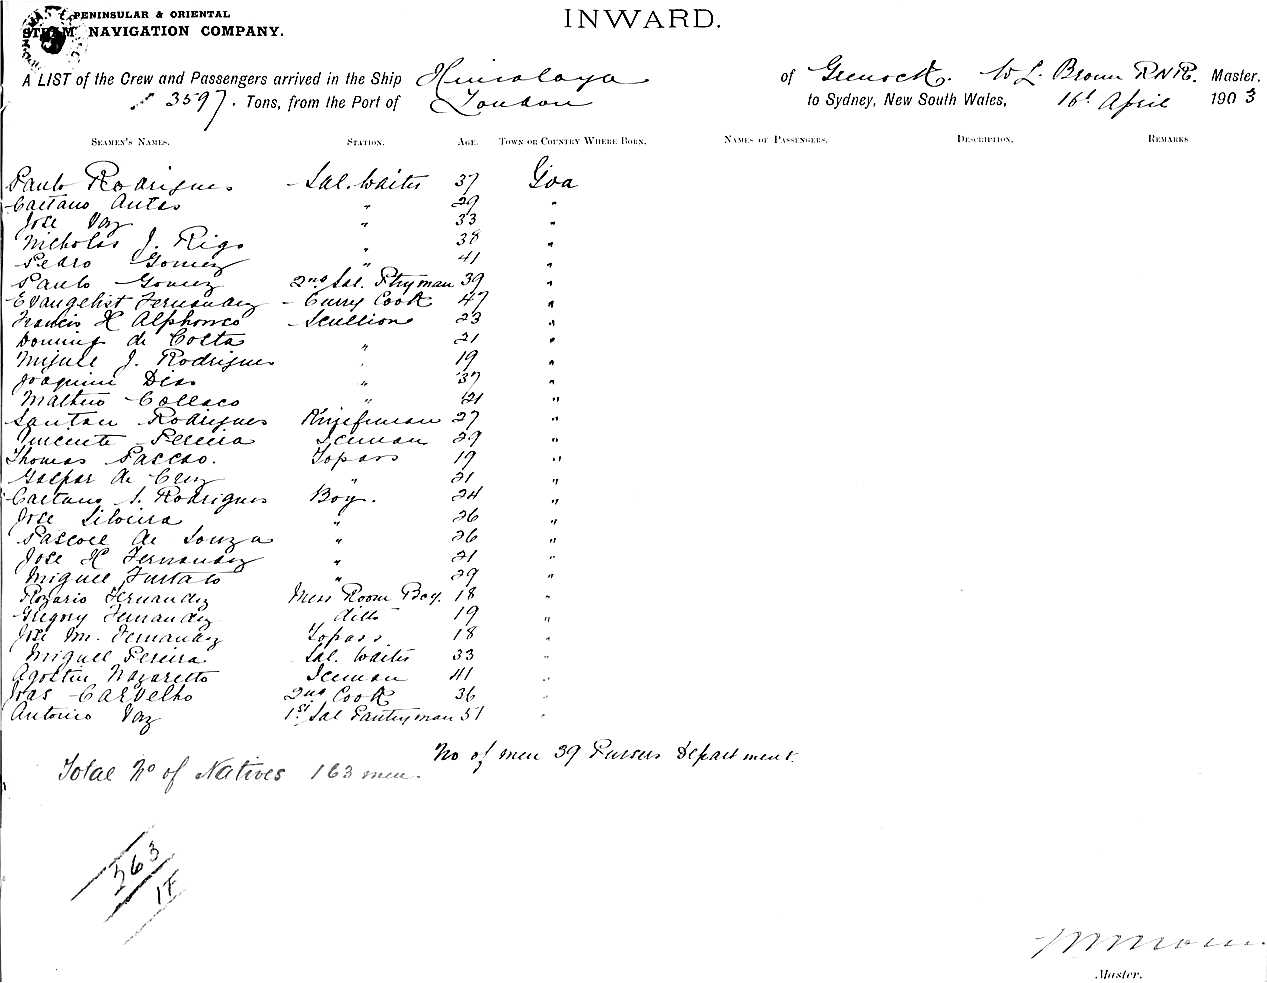 PENINSULAR & ORIENTAL
STEAM NAVIGATION COMPANY.
INWARD.
A LIST of the Crew and Passengers arrived in the Ship Himalaya of Greenock. W L Brown RNR. Master.
3597. Tons, from the Port of London to Sydney, New South Wales, 16th April 1903
SEAMEN'S NAMES. STATION. AGE. TOWN OR COUNTRY WHERE BORN. NAMES OF PASSENGERS. DESCRIPTION. REMARKS
Paulo Rodrigues - Sal. Waiter 37 Goa
Caetano Antao " 29 "
Jose Vaz " 33 "
Nicholas J. Rigo " 38 "
Pedro Gomez " 41 "
Paulo Gomez 2nd Sal. Ptryman 39 "
Evangelist Fernandez - Curry Cook 47 "
Francis X Alphonso - Scullion 23 "
Doming de Costa " 21 "
Miguel J. Rodrigues " 19 "
Joaquim Dias " 37 "
Matheo Collaco " 21 "
Santan Rodrigues Knifeman 27 "
Vincente Pereira Iceman 29 "
Thomas Topass 19 "
Gaspar de Cruz " 21 "
Caetano S. Rodrigues Boy. 24 "
Jose Silveira " 26 "
Pascoel de Souza " 26 "
Jose X Fernandez " 21 "
Miguel Furtato " 29 "
Rozario Fernandez Mess Room Boy. 18 "
Gregory Fernandez ditto 19 "
Jose M. Fernandez Topass 18 "
Miguel Pereira Sal. Waiter 33 "
Agostin Nazaretto Iceman 41 "
Joas Carvelho 2nd Cook 36 "
Antonio Vaz 1st Sal Pantryman 51 "
No of men 39 Pursers Department.
Total No of Natives 163 men.
363
1F
Master.